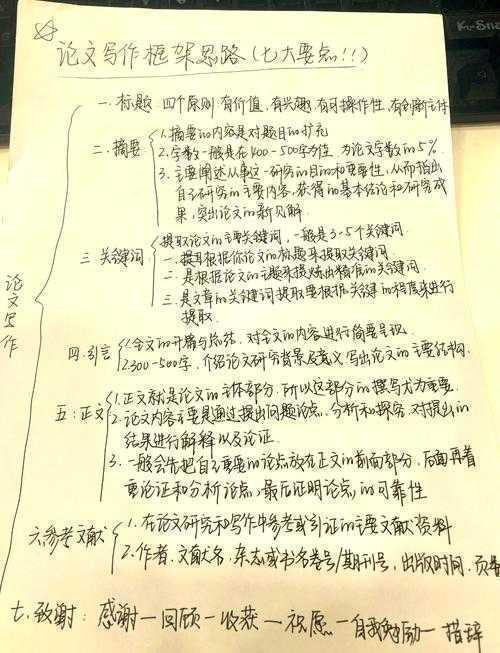 论文写作框架思路(七大要点!!!)
论文写作
一.标题 四个原则:有价值,有兴趣,有可操作性,有创新立体
二.摘要
1.摘要的内容是对题目的扩充
2.字数一般是在400-500字为佳,为论文字数的5%.
3.主要阐述从事这一研究的目的和重要性,从而指出
自己研究的主要内容,获得的基本结论和研究成
果,突出论文的新见解.
三.关键词
提取论文的主要关键词,一般是3-5个关键词
一.提取根据你论文的标题来提取关键词
二.是根据论文的主题来提炼出精准的关键词.
三.是文章的关键词提取要根据关键的程度来进行
提取.
四.引言
1.全文的开篇与总结,对全文的内容进行简要呈现
2.300-500字,介绍论文研究背景及意义,写出论文的主要结构.
五:正文
1.正文就是论文的主体部分,所以这部分的撰写尤为重要.
2.论文内容主要是通过提出问题论点,分析和探究,对提出的
结果进行解释以及论证.
3.一般会先把自己主要的论点放在正文的前面部分,后面再着
重论证和分析论点,最后证明论点的可靠性
六.参考文献
1.在论文研究和写作中参考或引证的主要文献资料
2.作者,文献名,杂志或书名卷号/期刊号,出版时间,页
七.致谢:感谢一回顾一收获一祝愿一自我勉励一措辞